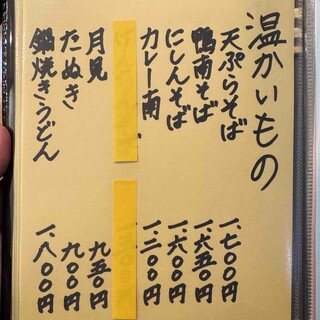 温かいもの
天ぷらそば 一、七〇〇円
鴨南そば 一、六五〇円
にしんそば 一、六〇〇円
カレー南 一、二〇〇円
月見 九五〇円
たぬき 九〇〇円
鍋焼きうどん 一、八〇〇円